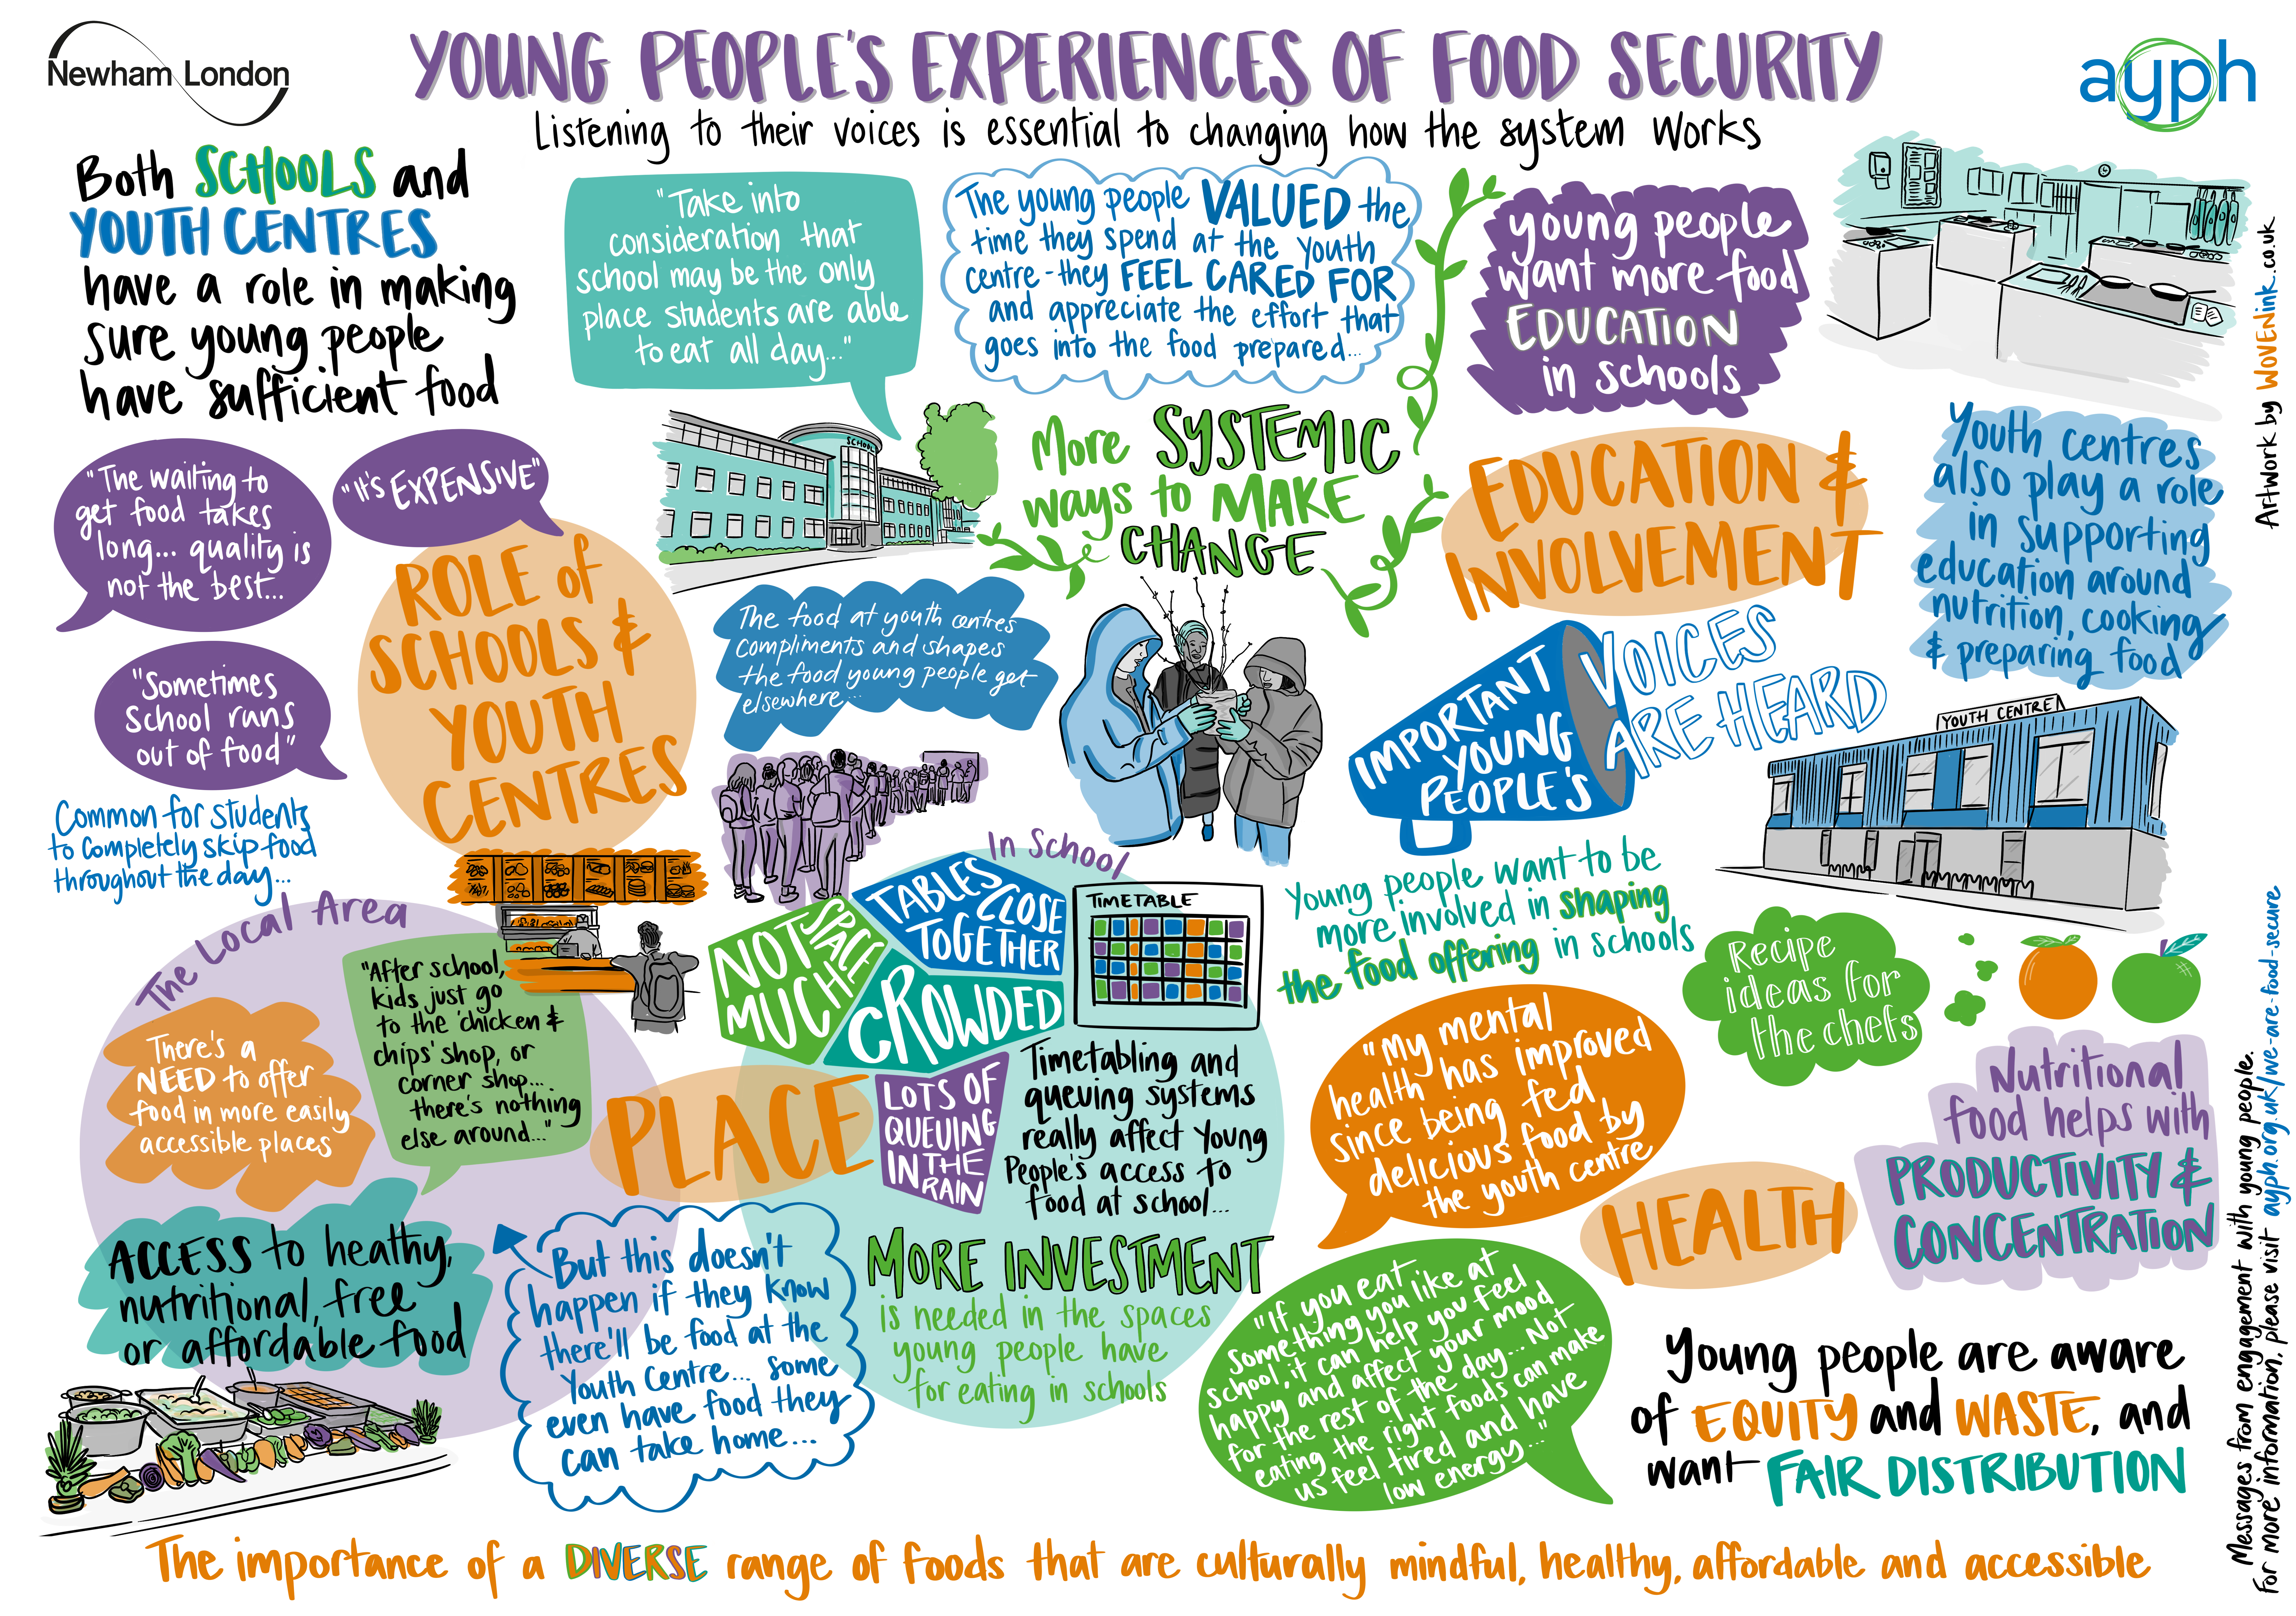 Newham London
YOUNG PEOPLE'S EXPERIENCES OF FOOD SECURITY
Listening to their voices is essential to changing how the system works
ayph
Both SCHOOLS and
YOUTH CENTRES
have a role in making
sure young people
have sufficient food
"Take into
consideration that
school may be the only
place students are able
to eat all day..."
The young people VALUED the
time they spend at the youth
centre - they FEEL CARED FOR
and appreciate the effort that
goes into the food prepared...
young people
want more food
EDUCATION
in schools
Artwork by WOVENink.co.uk
"The waiting to
get food takes
long... quality is
not the best...
"It's EXPENSIVE"
"Sometimes
School runs
out of food"
Common for students
to completely skip food
throughout the day...
ROLE of
SCHOOLS &
YOUTH
CENTRES
SCHOOL
More SYSTEMIC
ways to MAKE
CHANGE
EDUCATION &
INVOLVEMENT
Youth centres
also play a role
in supporting
education around
nutrition, cooking
& preparing food
The food at youth centres
compliments and shapes
the food young people get
elsewhere...
IMPORTANT
YOUNG
PEOPLE'S
VOICES
ARE HEARD
YOUTH CENTRE
Young people want to be
more involved in shaping
the food offering in schools
Recipe
ideas for
the chefs
The Local Area
There's a
NEED to offer
food in more easily
accessible places
"After school,
kids just go
to the 'chicken &
chips' shop, or
corner shop...
there's nothing
else around..."
ACCESS to heathy,
nutritional, free
or affordable food
PLACE
But this doesn't
happen if they know
there'll be food at the
Youth Centre... some
even have food they
can take home...
In School
TABLES
CLOSE
TOGETHER
NOT
MUCH
SPACE
CROWDED
LOTS OF
QUEUING
IN THE
RAIN
TIMETABLE
Timetabling and
queuing systems
really affect Young
People's access to
food at school...
MORE INVESTMENT
is needed in the spaces
young people have
for eating in schools
"My mental
health has improved
since being fed
delicious food by
the youth centre
HEALTH
Nutritional
food helps with
PRODUCTIVITY &
CONCENTRATION
"If you eat
something you like at
school, it can help you feel
happy and affect your mood
for the rest of the day... Not
eating the right foods can make
us feel tired and have
low energy..."
Young people are aware
of EQUITY and WASTE, and
want FAIR DISTRIBUTION
The importance of a DIVERSE range of foods that are culturally mindful, healthy, affordable and accessible
Messages from engagement with young people.
For more information, please visit ayph.org.uk/we-are-food-secure